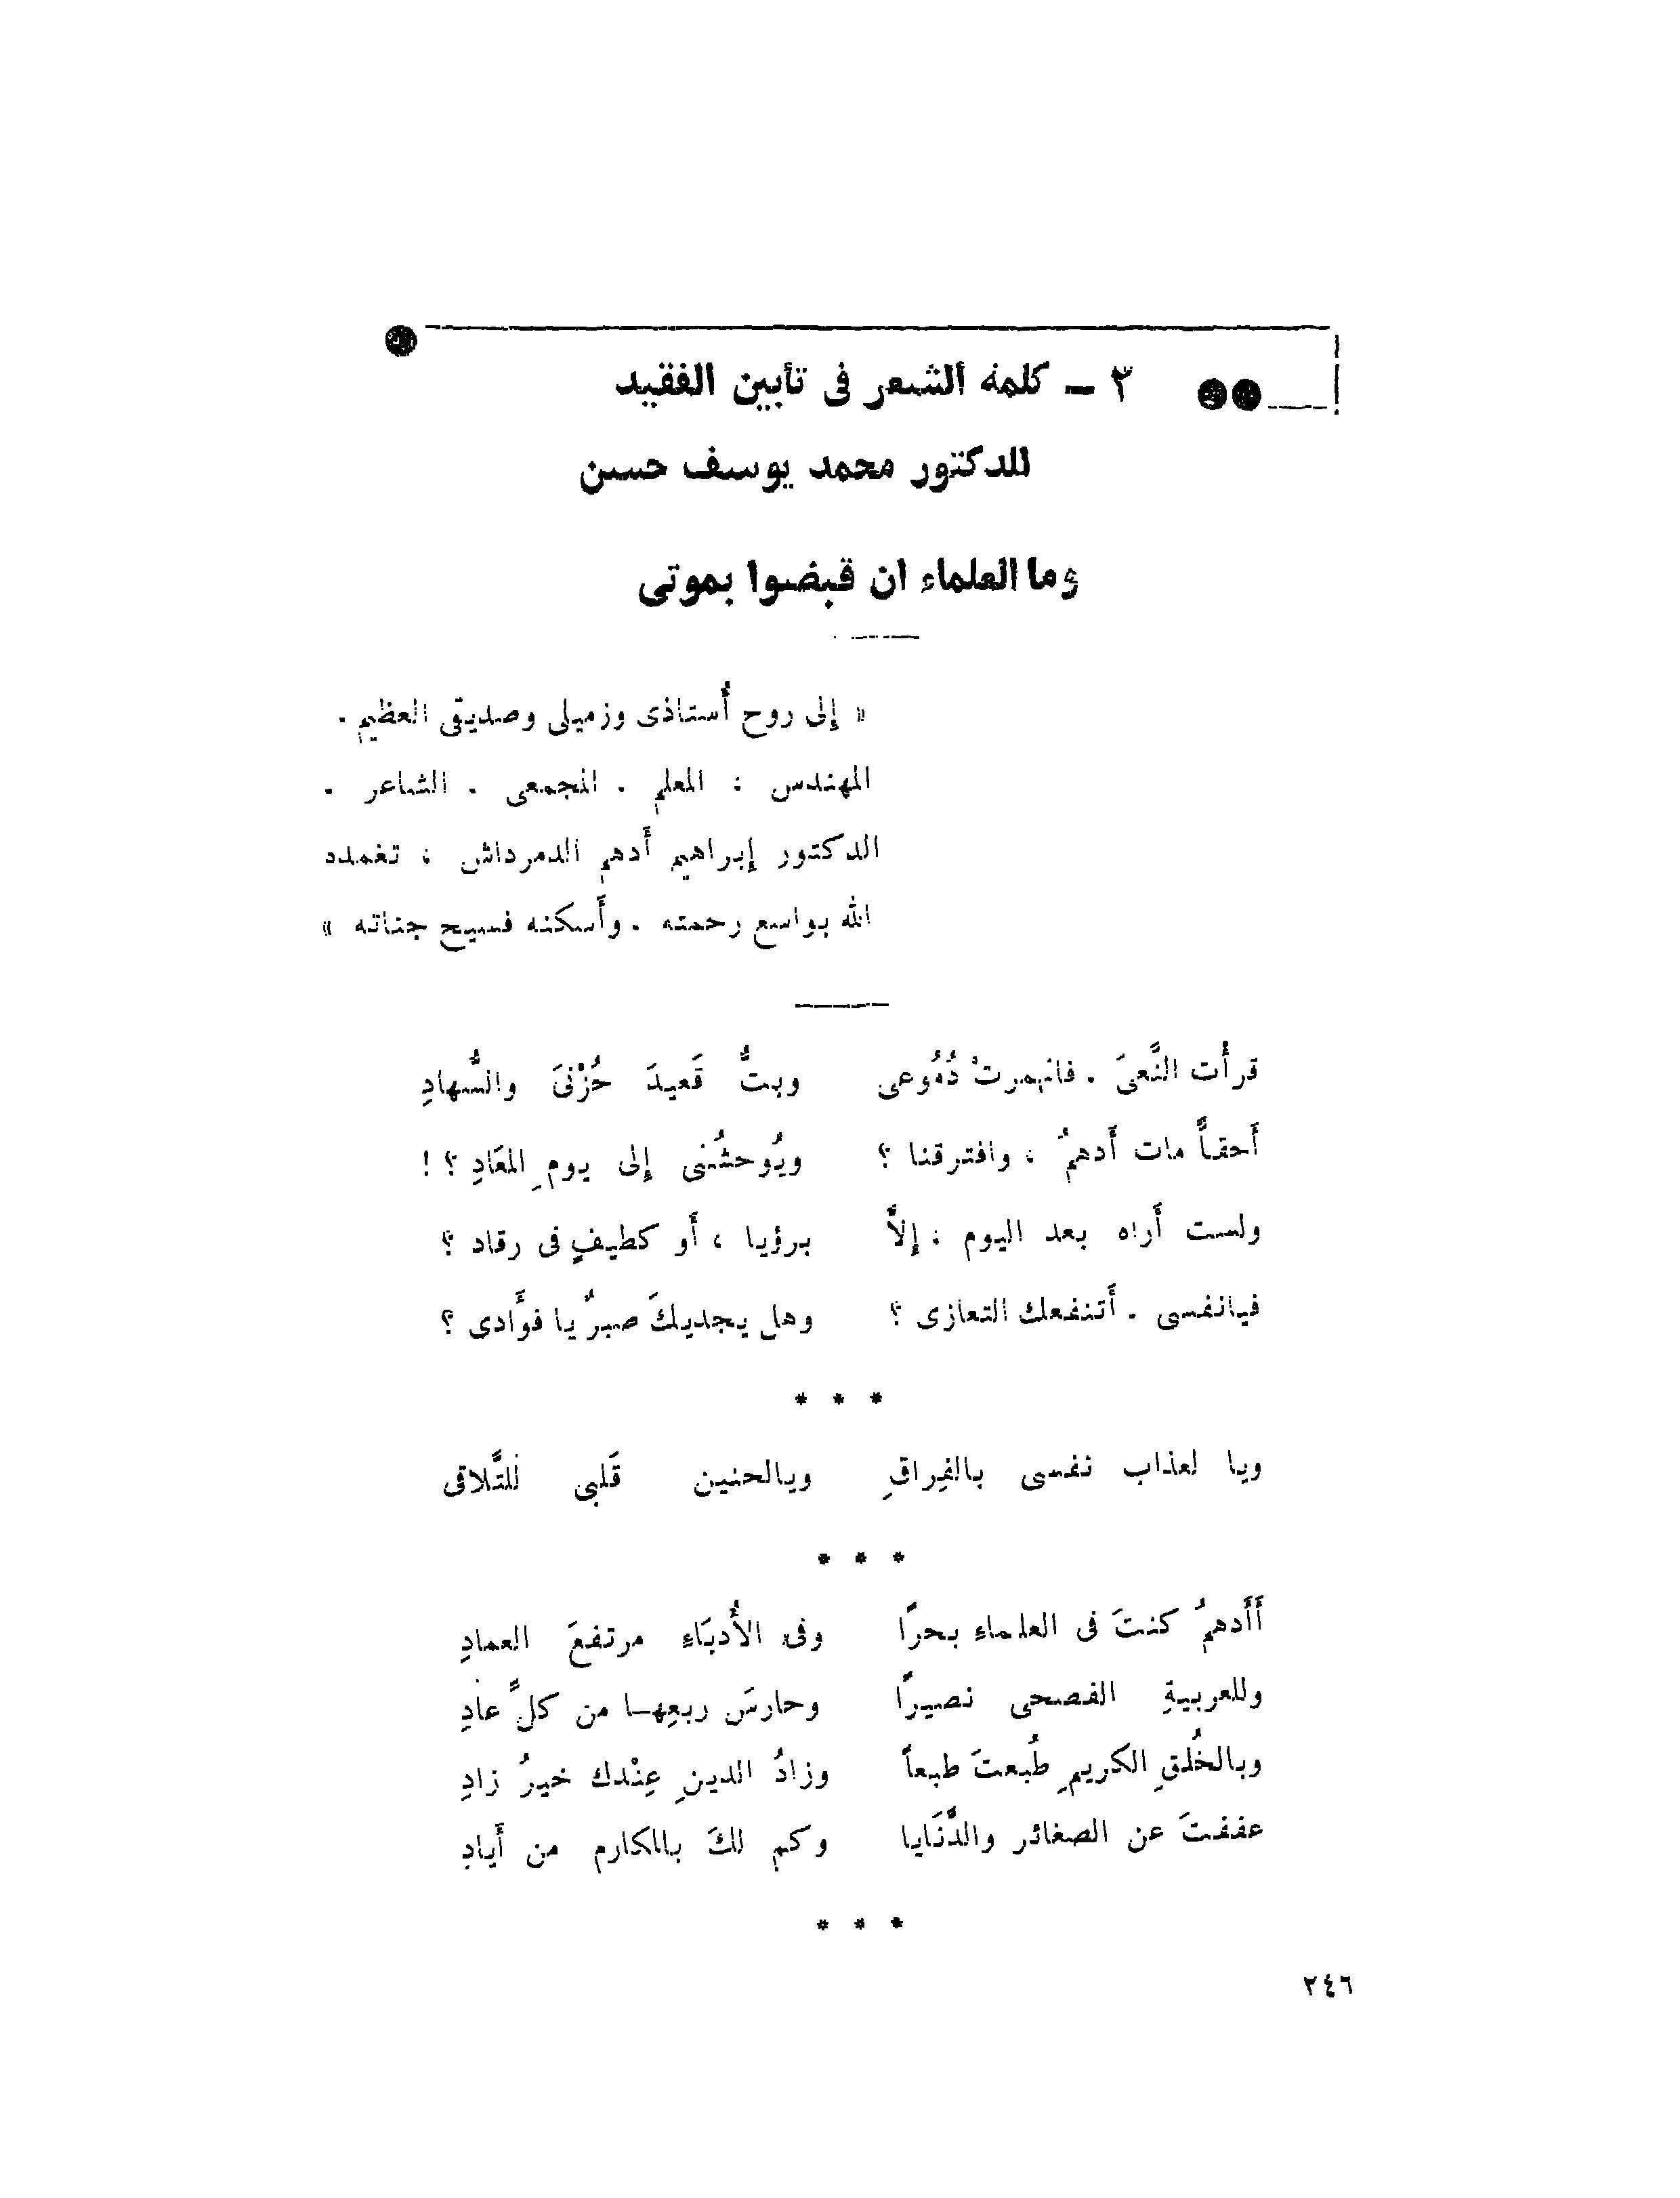 ٣ - كلمة الشعر فى تأبين الفقيد
للدكتور محمد يوسف حسن
وما العلماء ان قبضوا بموتى
« إلى روح أُستاذى وزميلى وصديقى العظيم .
المهندس ، المعلم . المجمعى . الشاعر .
الدكتور إبراهيم أَدهم الدمرداش ، تغمده
الله بواسع رحمته . وأَسكنه فسيح جناته »
قرأْت النَّعىَ . فانهمرتْ دُمُوعى وبتُّ قَعيدَ حُزْنىَ والسُّهادِ
أَحقاًّ مات أَدهمُ ، وافترقنا ؟ ويُوحشُنى إلى يومِ المعَادِ ؟ !
ولست أَراه بعد اليوم ، إلاَّ برؤيا ، أَو كطيفٍ فى رقاد ؟
فيانفسى . أَتنفعك التعازى ؟ وهل يجديكَ صبرٌ يا فؤَادى ؟
* * *
ويا لعذاب نفسى بالفِراقِ ويالحنين قَلبى للتَّلاقى
* * *
أَأَدهمُ كنتَ فى العلماءِ بحرًا وفى الأُدبَاءِ مرتفعَ العمادِ
وللعربيةِ الفصحى نصيرًا وحارسَ ربعِهـا من كلِّ عادِ
وبالخُلقِ الكريمِ طُبعتَ طبعاً وزادُ الدينِ عِنْدك خيرُ زادِ
عففتَ عن الصغائر والدَّنَايا وكم لكَ بالمكارم من أَيادِ
* * *
٢٤٦